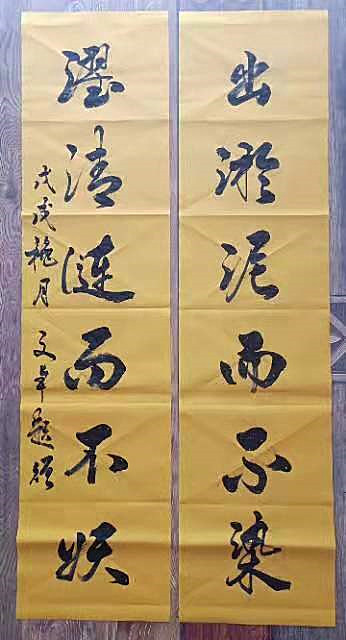 出淤泥而不染
濯清涟而不妖
戊戌桂月 文卓题